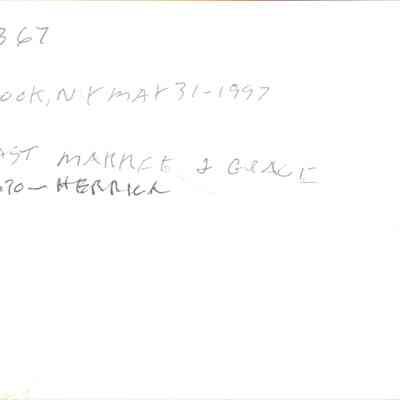 367
OOK, NY MAY 31-1997
AST MARKET & GRACE
OTO- HERRICK